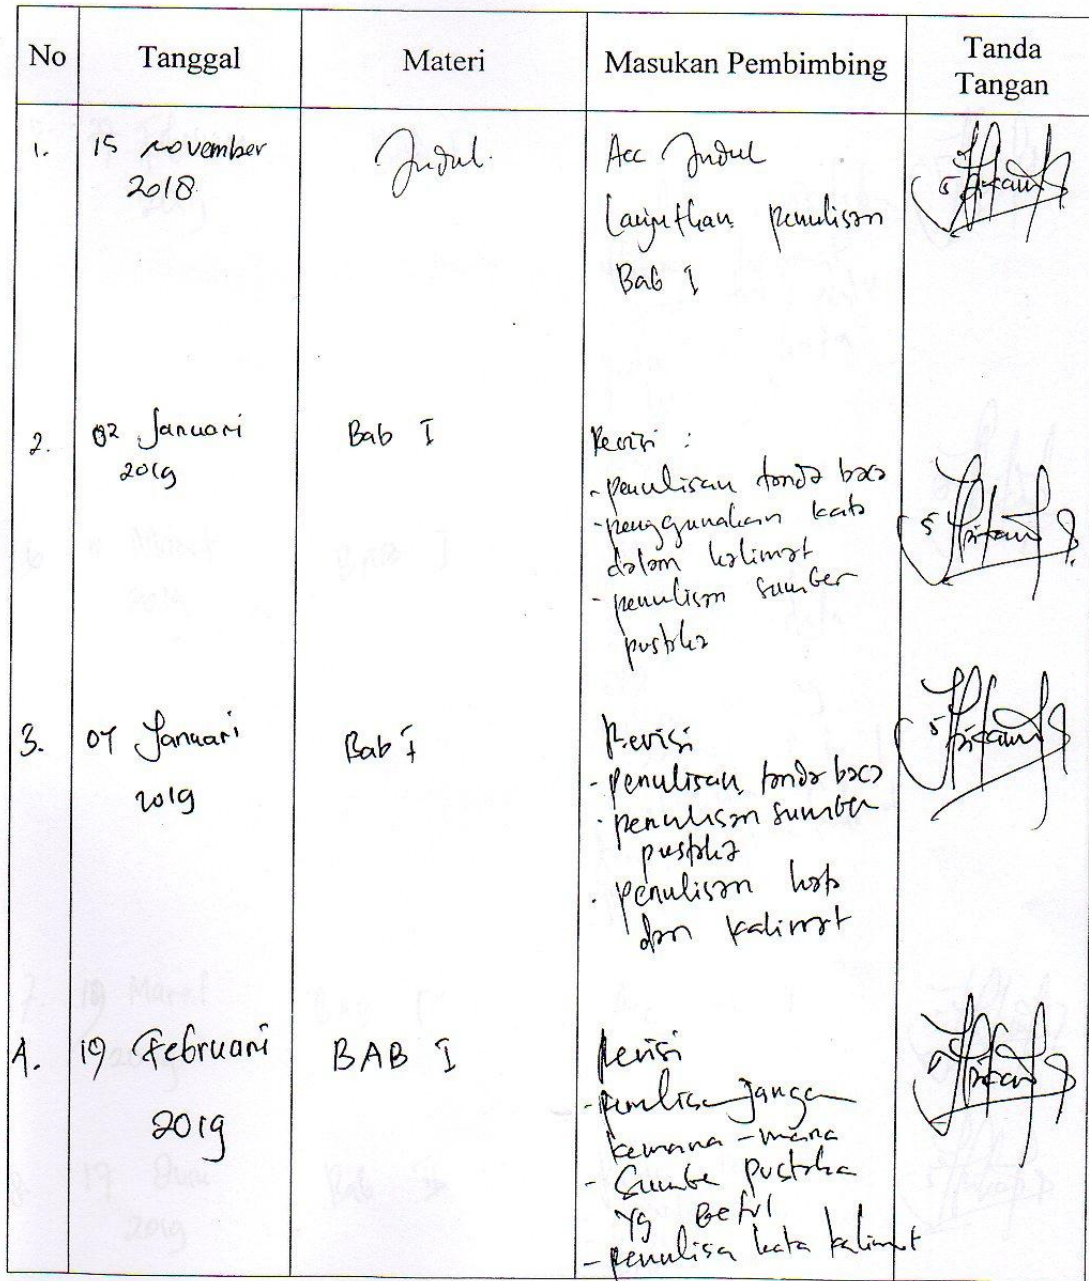 No Tanggal Materi Masukan Pembimbing Tanda Tangan
1. 15 november 2018
Judul
Acc Judul
Lanjutkan penulisan
Bab I
2. 02 Januari 2019
Bab I
Revisi :
- penulisan tanda baca
- penggunakan kata
dalam kalimat
- penulisan sumber
pustaka
3. 07 Januari 2019
Bab I
Revisi
- penulisan tanda baca
- penulisan sumber
pustaka
- penulisan kata
dan kalimat
4. 19 Februari 2019
BAB I
Revisi
- penulisan jangan
kemana - mana
- Sumber pustaka
yg Betul
- penulisan kata kalimat